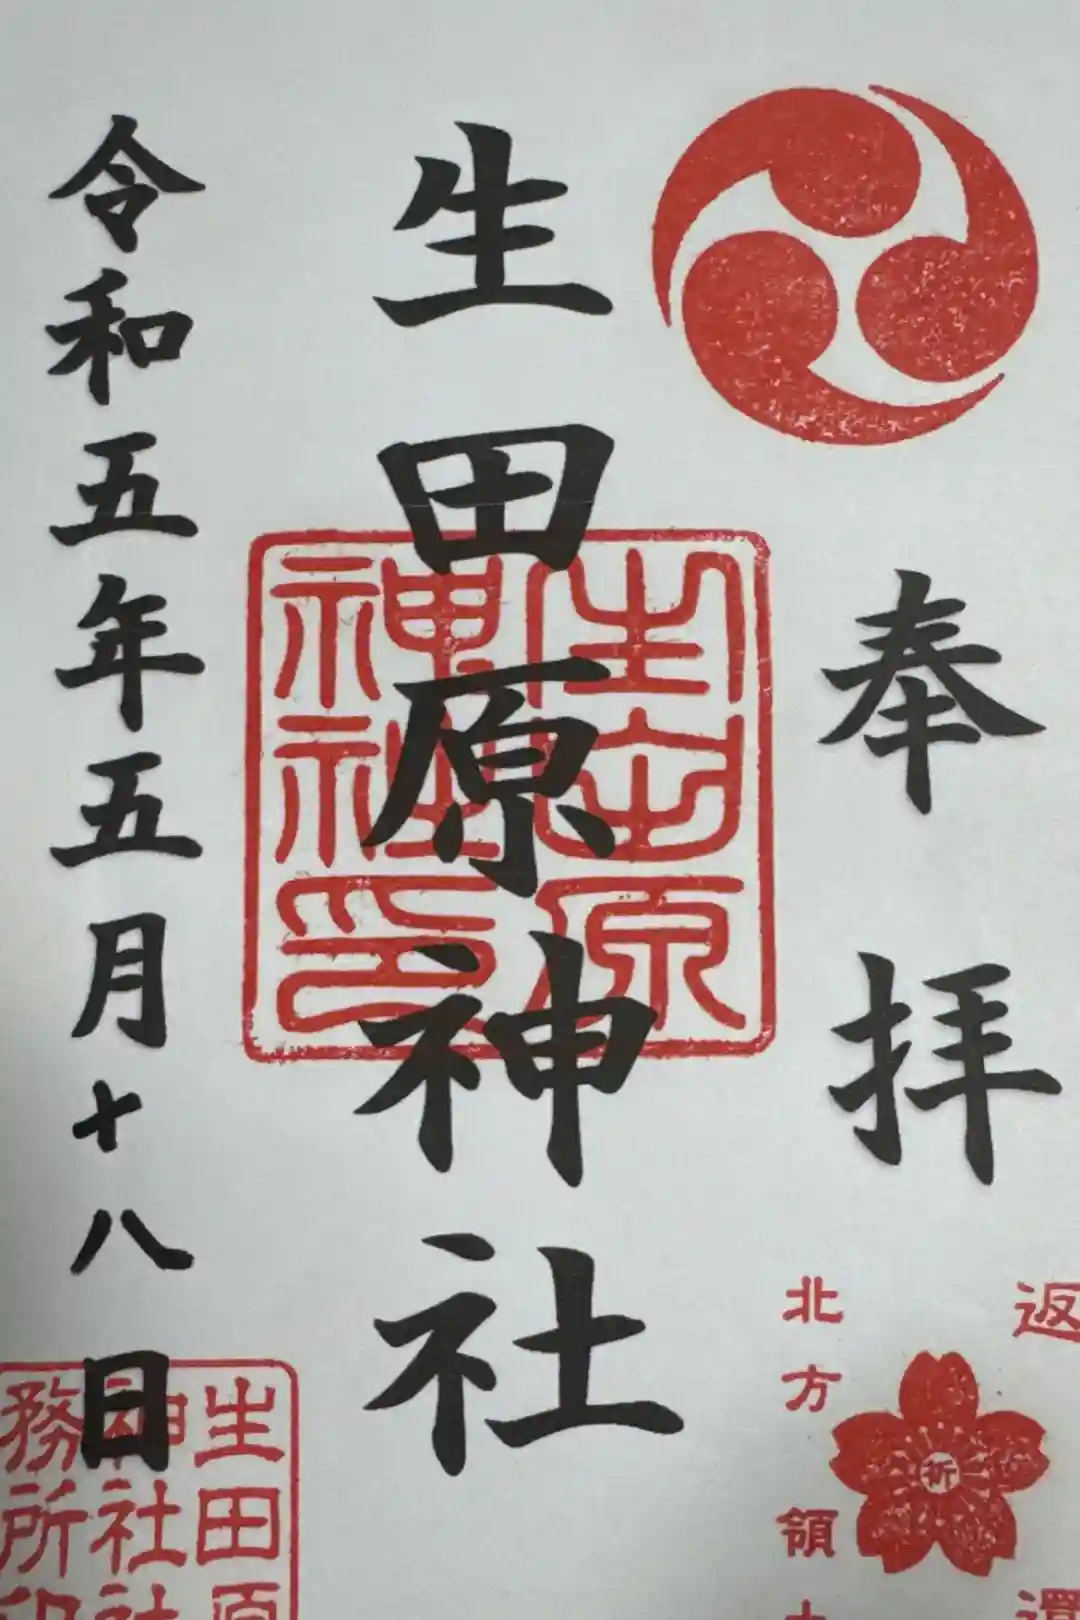 奉拝
返還
北方領土
祈
生田原神社
生田原
神社印
令和五年五月十八日
生田原
神社社
務所印